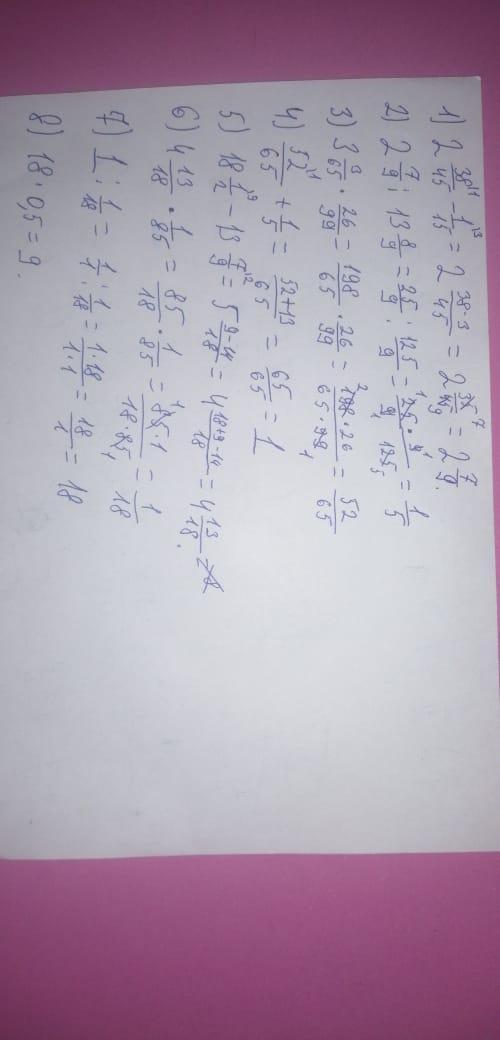 1) 2 38/45 - 1/15 = 2 38-3/45 = 2 35/45 = 2 7/9.
2) 2 7/9 : 13 8/9 = 25/9 : 125/9 = 25·9/9·125 = 1/5
3) 3 3/65 · 26/99 = 198/65 · 26/99 = 198·26/65·99 = 52/65
4) 52/65 + 1/5 = 52+13/65 = 65/65 = 1
5) 18 1/2 - 13 7/9 = 5 9-14/18 = 4 18+9-14/18 = 4 13/18.
6) 4 13/18 · 1/85 = 85/18 · 1/85 = 85·1/18·85 = 1/18
7) 1 : 1/18 = 1/1 : 1/18 = 1·18/1·1 = 18/1 = 18
8) 18·0,5 = 9.